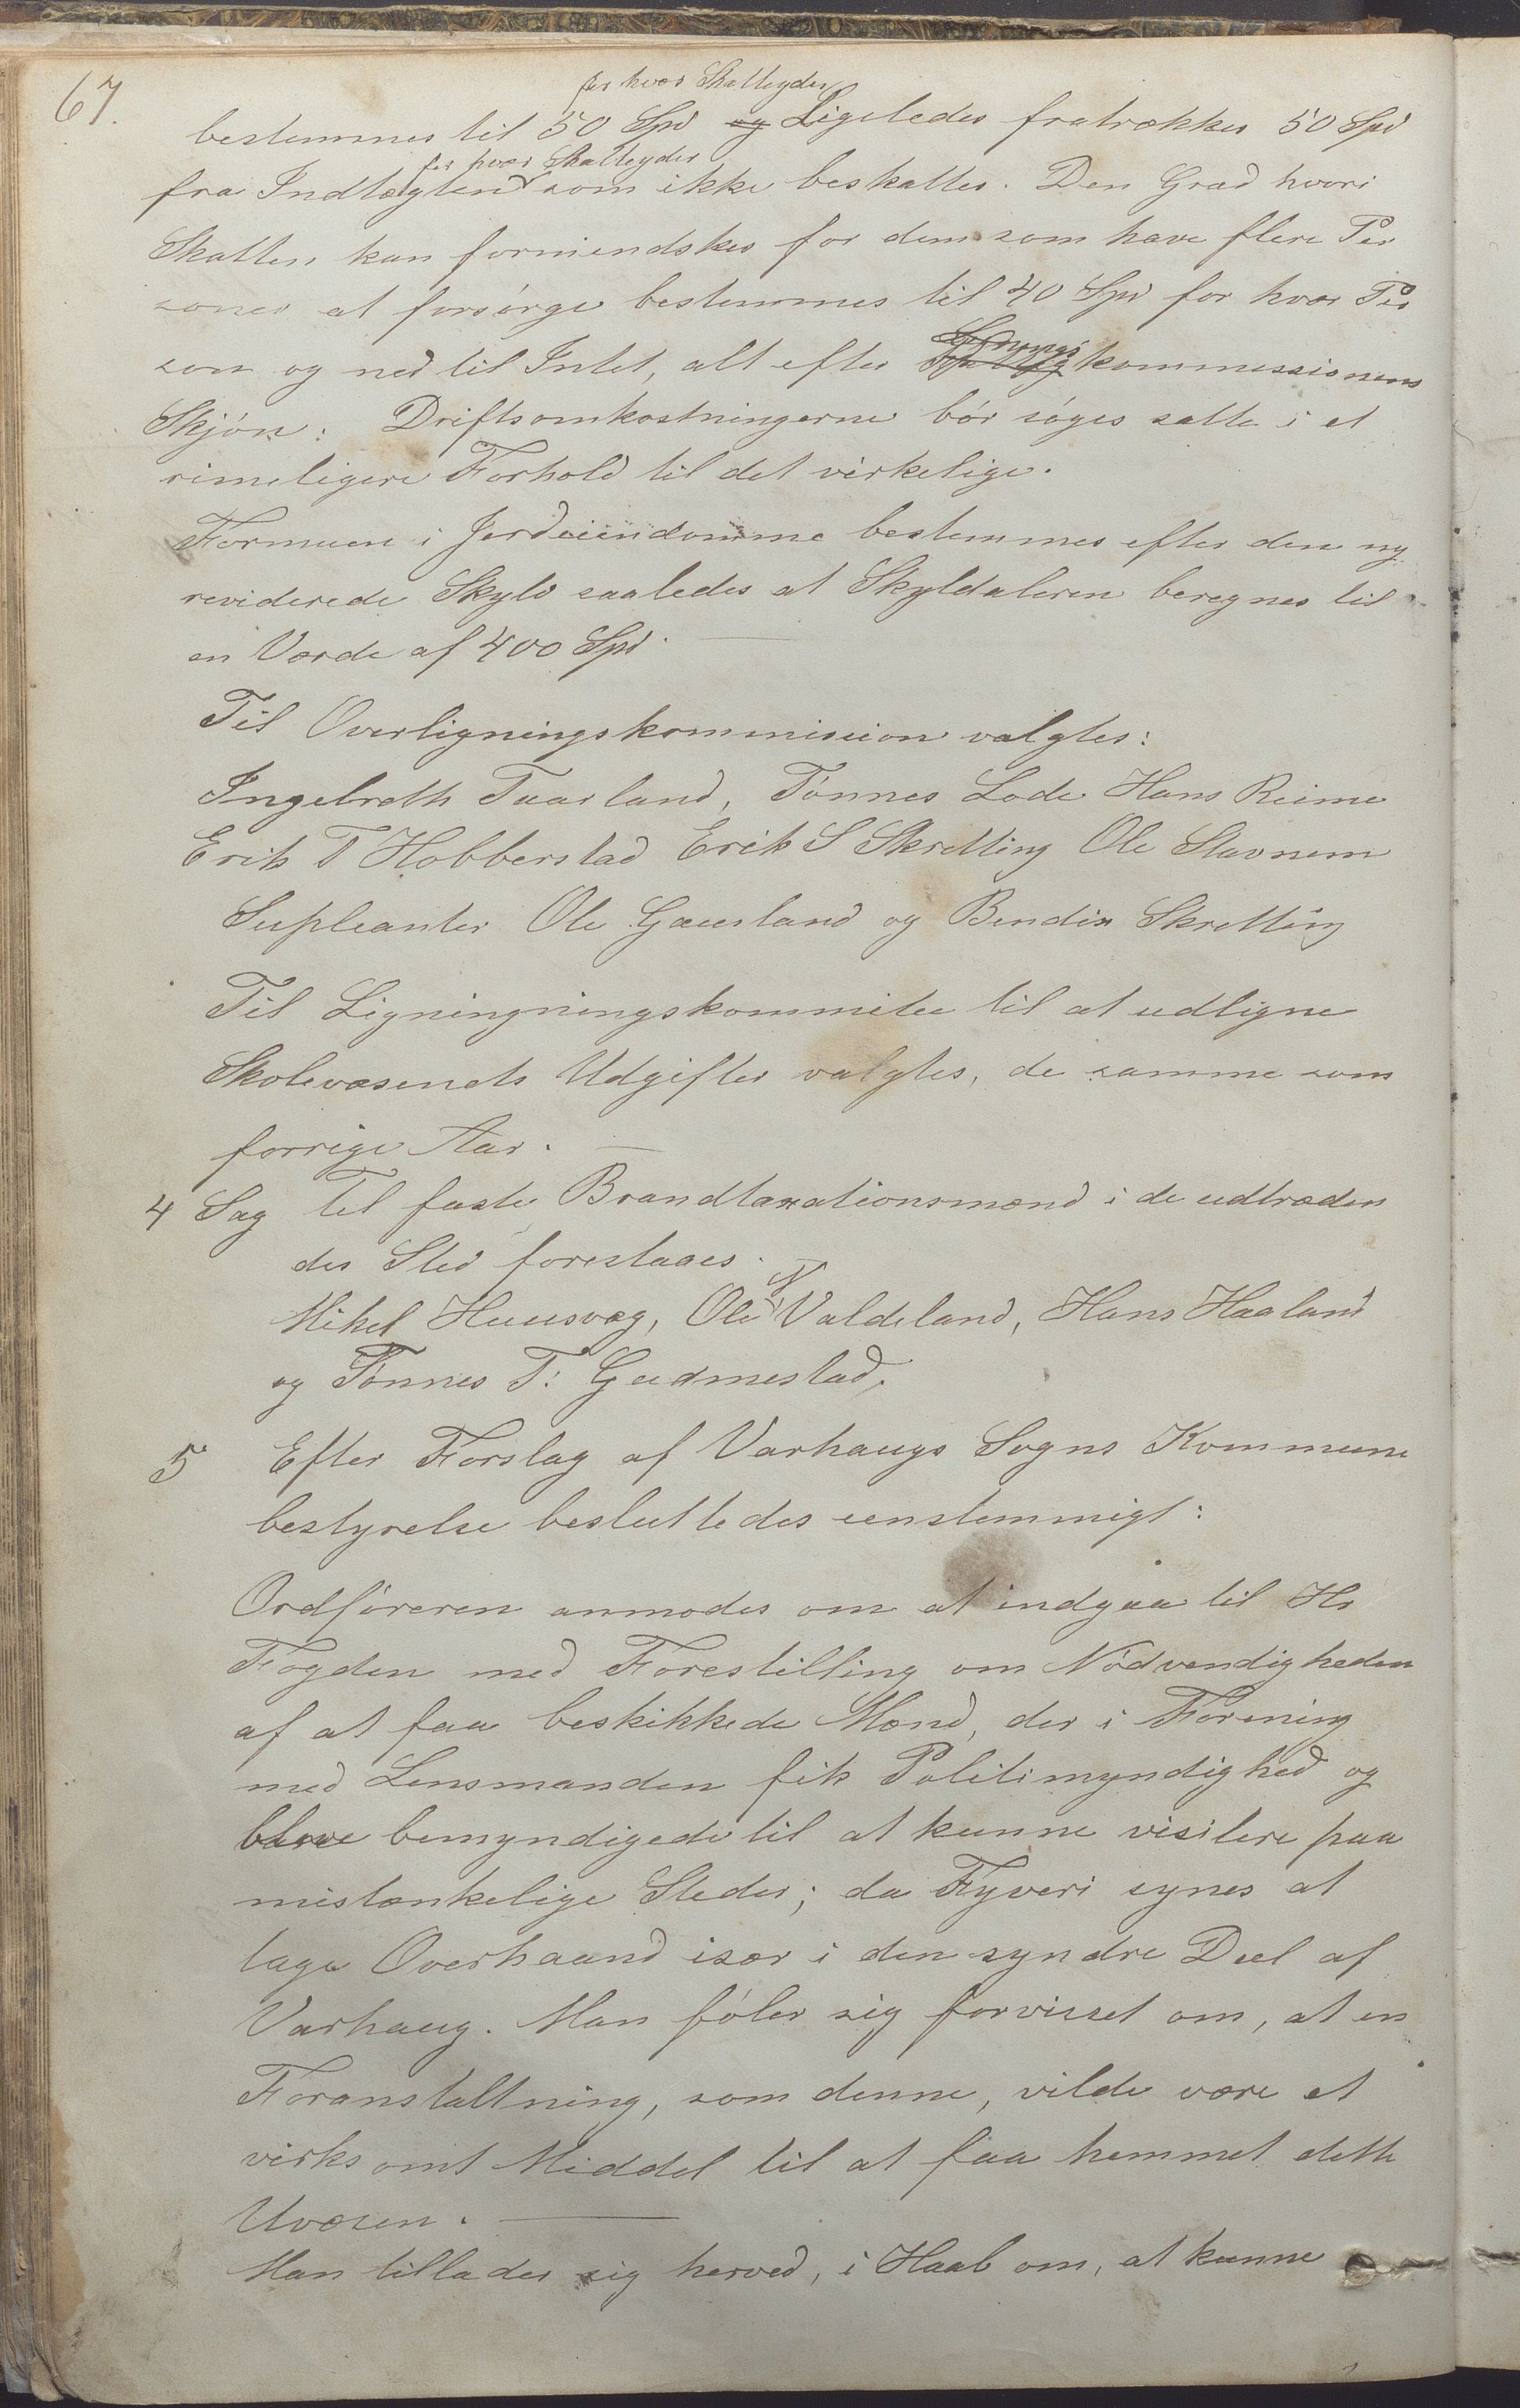 67.
for hver Skatteyder
bestemmes til 50 Spd og Ligeledes fratrækkes 50 Spd
for hver Skatteyder
fra Indtægten som ikke beskattes. Den Grad hvori
Skatten kan formindskes for dem som have flere Per
soner at forsørge bestemmes til 40 Spd for hver Per
Lignings
son og ned til Intet, alt efter kommissionens
Skjøn: Driftsomkostningerne bør søges satte i et
rimeligere Forhold til det virkelige.
Formuen i Jordeiendomme bestemmes efter den ny
reviderede Skyld saaledes at Skyldaleren beregnes til
en Værde af 400 Spd.
Til Overligningskommission valgtes:
Ingebreth Taarland, Tønnes Lode Hans Reime
Erik T Hobberstad Erik S Skretting Ole Stavnem
Supleanter Ole Gausland og Bendix Skretting
Til Ligningningskommitee til at udligne
Skolevæsenets Udgifter valgtes, de samme som
forrige Aar.
4 Sag Til faste Brandtaxationsmænd i de udtræden
des Sted foreslaaes.
N
Mikel Huusvæg, Ole Valdeland, Hans Haaland
og Tønnes T: Gudmestad.
5 Efter Forslag af Varhaugs Sogns Kommune
bestyrelse besluttedes eenstemmigt:
Ordføreren anmodes om at indgaa til Hr
Fogden med Forestilling om Nødvendigheden
af at faa beskikkede Mænd, der i Forening
med Lensmanden fik Politimyndighed og
bleve bemyndigede til at kunne visitere paa
mistænkelige Steder; da Tyveri synes at
tage Overhaand især i den syndre Deel af
Varhaug. Man føler sig forvisset om, at en
Foranstaltning, som denne, vilde være et
virksomt Middel til at faa hemmet dette
Uvæsen.
Man tillader sig herved, i Haab om, at kunne